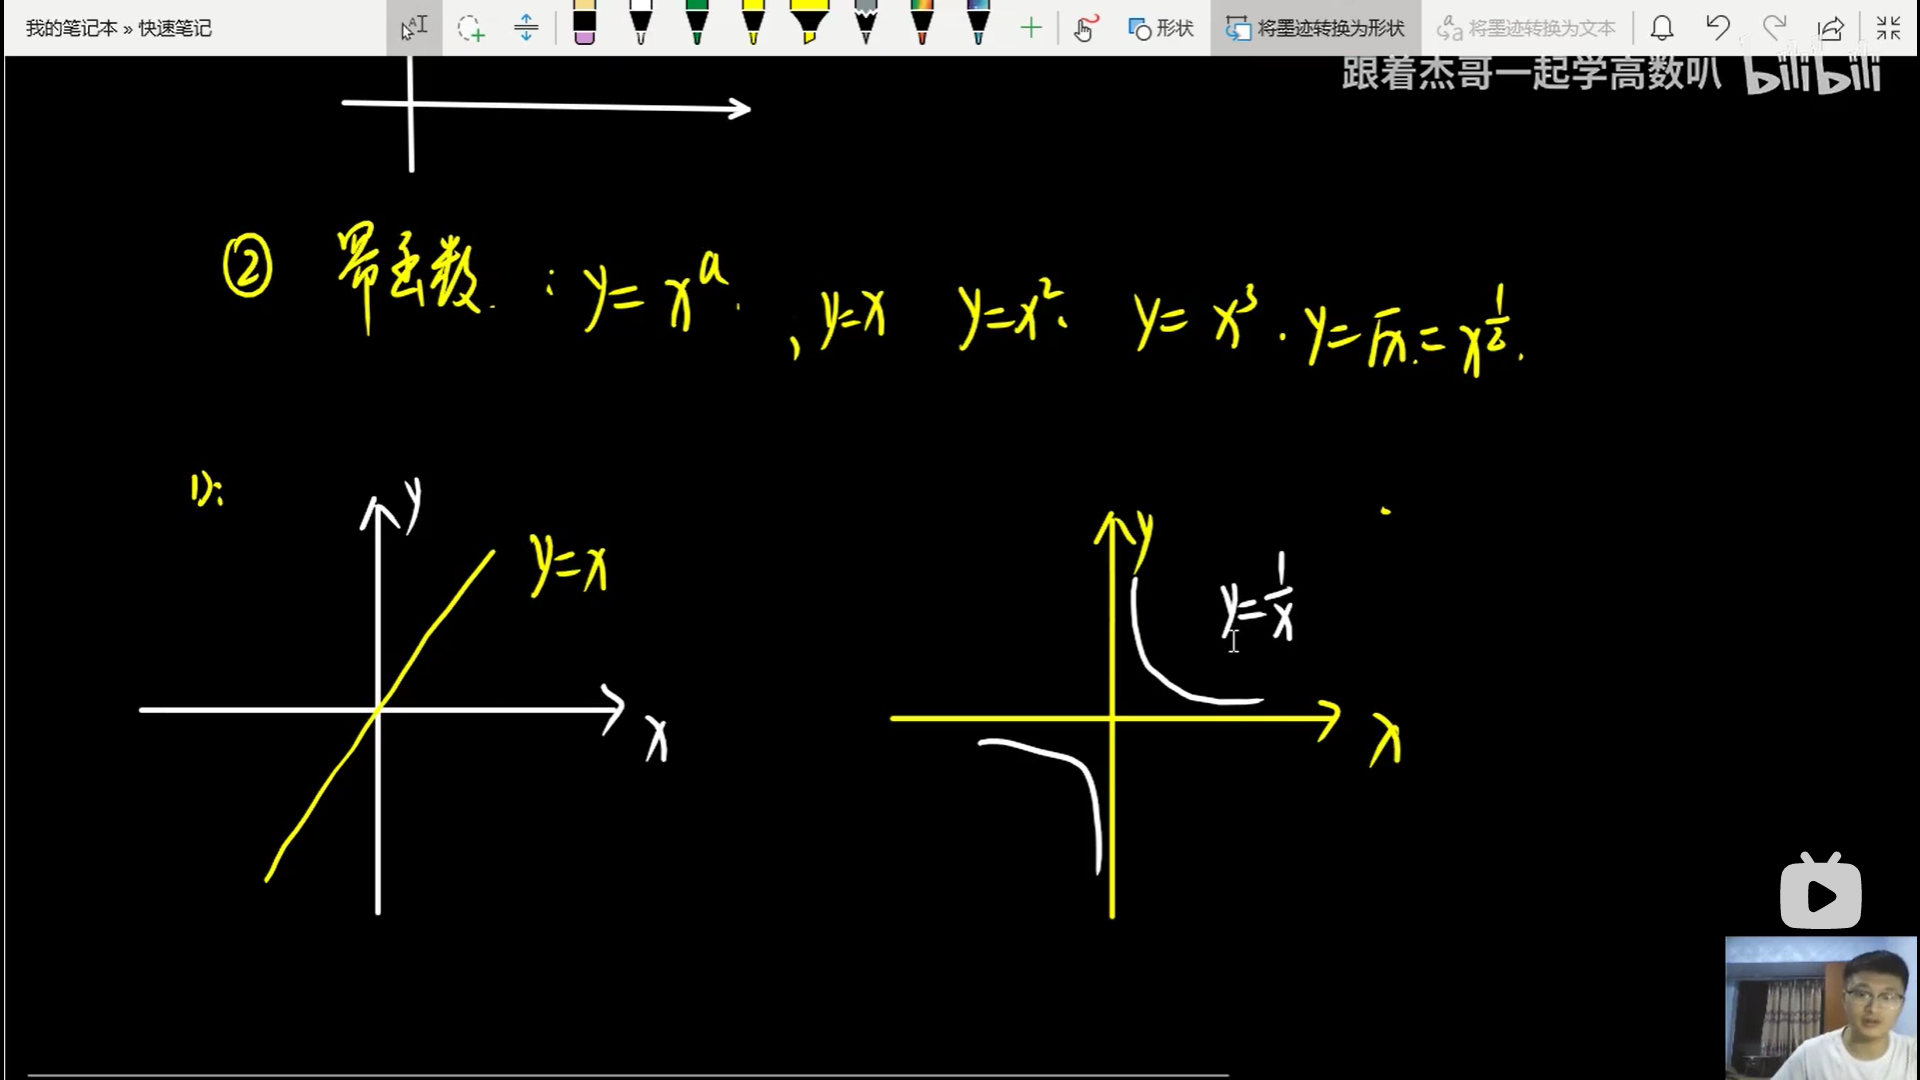 我的笔记本 » 快速笔记
形状
将墨迹转换为形状
将墨迹转换为文本
跟着杰哥一起学高数叭 bilibili
② 幂函数 : y = x^a . , y=x y=x² . y = x³ . y = √x . = x^{1/2} .
1):
y
y=x
x
y
y=1/x
x